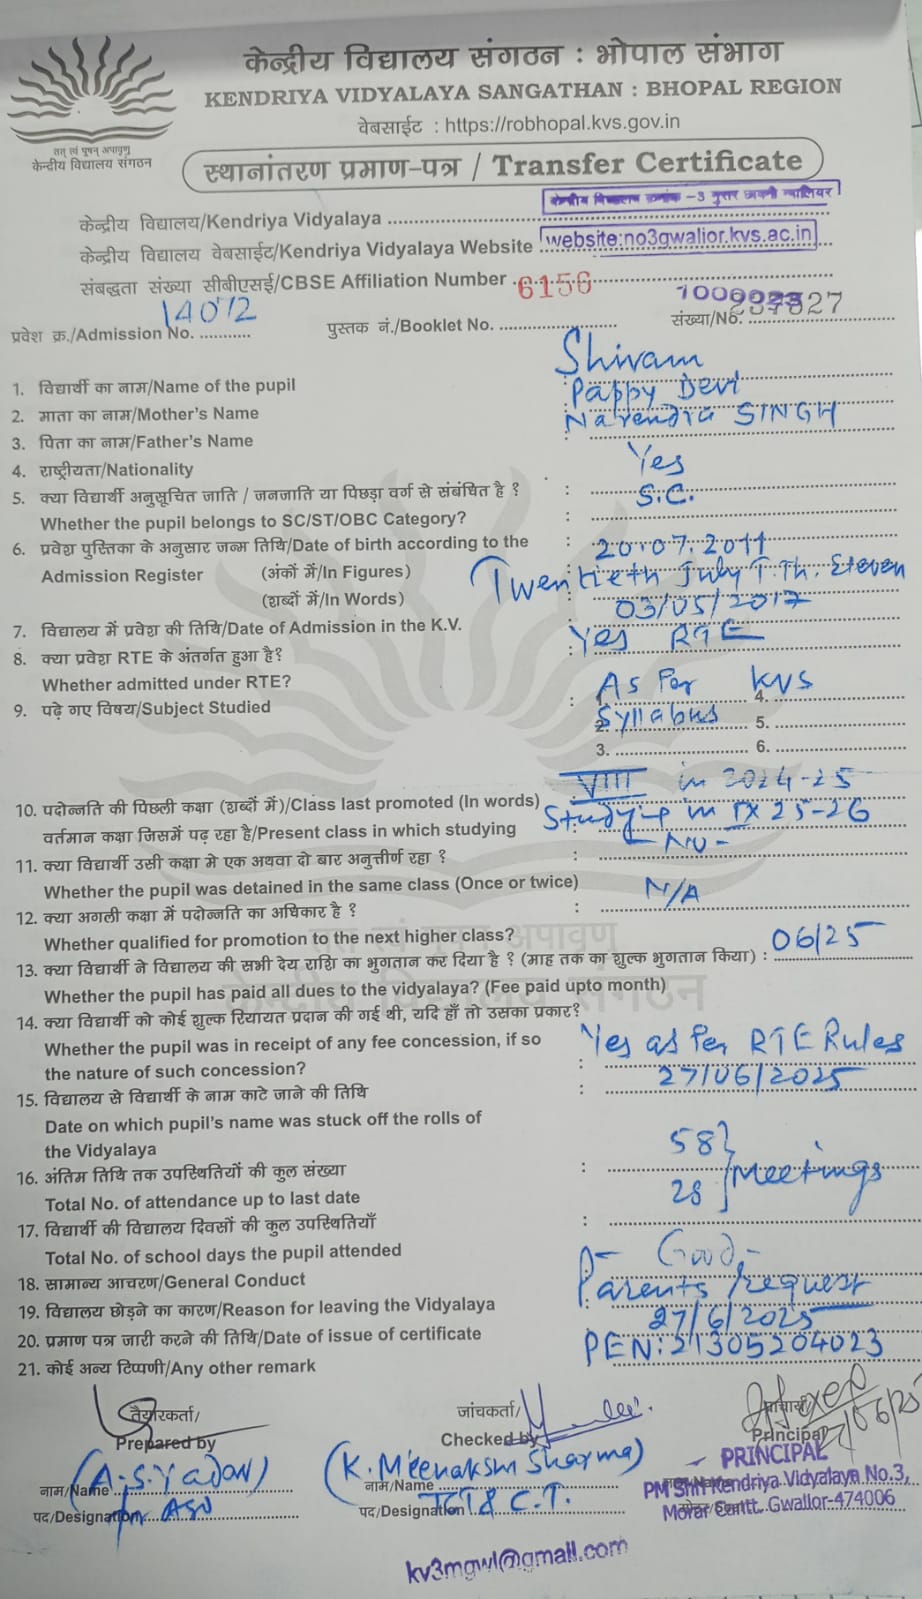 केन्द्रीय विद्यालय संगठन : भोपाल संभाग
KENDRIYA VIDYALAYA SANGATHAN : BHOPAL REGION
वेबसाईट : https://robhopal.kvs.gov.in
तत् त्वं पूषन् अपावृणु
केन्द्रीय विद्यालय संगठन
स्थानांतरण प्रमाण-पत्र / Transfer Certificate
केन्द्रीय विद्यालय/Kendriya Vidyalaya केन्द्रीय विद्यालय क्रमांक -3 मुरार छावनी ग्वालियर
केन्द्रीय विद्यालय वेबसाईट/Kendriya Vidyalaya Website website:no3gwalior.kvs.ac.in
संबद्धता संख्या सीबीएसई/CBSE Affiliation Number 6156
प्रवेश क्र./Admission No. 14072 पुस्तक नं./Booklet No. संख्या/No.
1. विद्यार्थी का नाम/Name of the pupil Shivam
2. माता का नाम/Mother's Name : Pappy Devi
3. पिता का नाम/Father's Name : Narendra SINGH
4. राष्ट्रीयता/Nationality Yes
5. क्या विद्यार्थी अनुसूचित जाति / जनजाति या पिछड़ा वर्ग से संबंधित है ? : S.C.
Whether the pupil belongs to SC/ST/OBC Category? :
6. प्रवेश पुस्तिका के अनुसार जन्म तिथि/Date of birth according to the : 20.07.2011
Admission Register (अंकों में/In Figures) Twentieth July T.Th. Eleven
(शब्दों में/In Words) :
7. विद्यालय में प्रवेश की तिथि/Date of Admission in the K.V. 03/05/2017
8. क्या प्रवेश RTE के अंतर्गत हुआ है? : Yes RTE
Whether admitted under RTE?
9. पढ़े गए विषय/Subject Studied : 1. As Per 4. KVS
2. Syllabus 5.
3. 6.
10. पदोन्नति की पिछली कक्षा (शब्दों में)/Class last promoted (In words) VIII in 2024-25
वर्तमान कक्षा जिसमें पढ़ रहा है/Present class in which studying Studying in IX 25-26
11. क्या विद्यार्थी उसी कक्षा मे एक अथवा दो बार अनुत्तीर्ण रहा ? : - NO -
Whether the pupil was detained in the same class (Once or twice) N/A
12. क्या अगली कक्षा में पदोन्नति का अधिकार है ? :
Whether qualified for promotion to the next higher class?
13. क्या विद्यार्थी ने विद्यालय की सभी देय राशि का भुगतान कर दिया है ? (माह तक का शुल्क भुगतान किया) : 06/25
Whether the pupil has paid all dues to the vidyalaya? (Fee paid upto month)
14. क्या विद्यार्थी को कोई शुल्क रियायत प्रदान की गई थी, यदि हाँ तो उसका प्रकार?
Whether the pupil was in receipt of any fee concession, if so Yes as Per RTE Rules
the nature of such concession? :
15. विद्यालय से विद्यार्थी के नाम काटे जाने की तिथि : 27/06/2025
Date on which pupil's name was stuck off the rolls of
the Vidyalaya
16. अंतिम तिथि तक उपस्थितियों की कुल संख्या : 58
Total No. of attendance up to last date 28 Meetings
17. विद्यार्थी की विद्यालय दिवसों की कुल उपस्थितियाँ :
Total No. of school days the pupil attended
18. सामान्य आचरण/General Conduct - Good -
19. विद्यालय छोड़ने का कारण/Reason for leaving the Vidyalaya Parents request
20. प्रमाण पत्र जारी करने की तिथि/Date of issue of certificate 27/6/2025
21. कोई अन्य टिप्पणी/Any other remark PEN: 21305204023
तैयारकर्ता/ जांचकर्ता/ प्राचार्य/
Prepared by Checked by Principal 27/06/25
PRINCIPAL
नाम/Name (A.S. YADAV) नाम/Name (K. Meenakshi Sharma) PM Shri Kendriya Vidyalaya No.3,
पद/Designation ASO पद/Designation TGT & C.T. Morar Cantt. Gwalior-474006
kv3mgwl@gmail.com